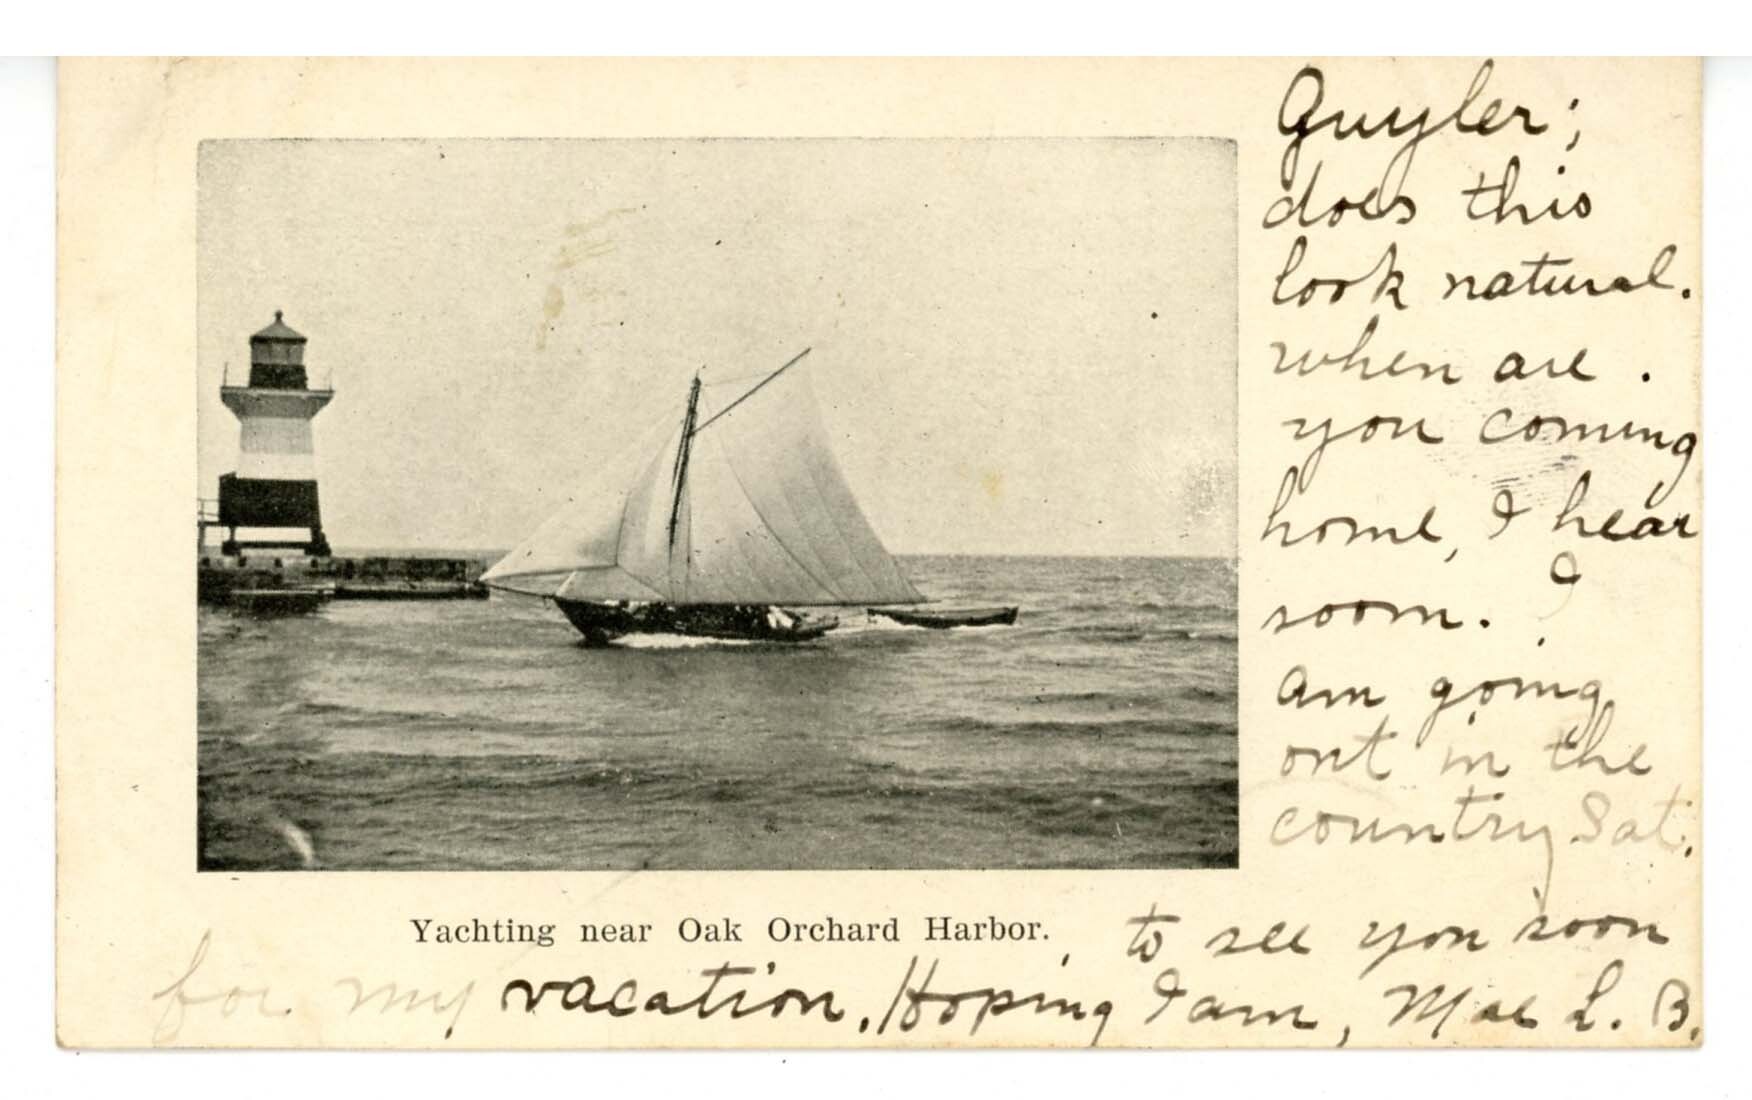 Guyler;
does this
look natural.
when are.
you coming
home, I hear
soon. I
am going
out in the
country Sat.
Yachting near Oak Orchard Harbor.
to see you soon
for my vacation. Hoping I am, Mae L. B.